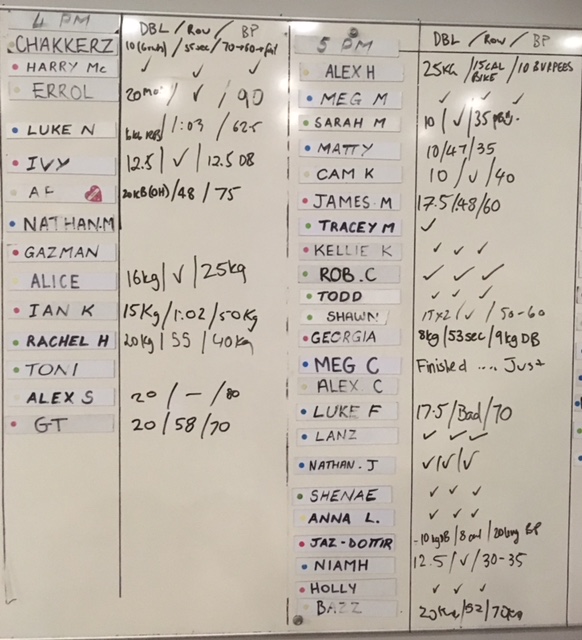 4 PM DBL / Row / BP
CHAKKERZ 10(6each) / 55sec / 70→60→fail
HARRY Mc ✓ ✓ ✓
ERROL / ✓ / 90
LUKE N / 1:03 / 62.5
IVY 12.5 / ✓ / 12.5 DB
AF 20KB(OH) / 48 / 75
NATHAN.M
GAZMAN
ALICE 16kg / ✓ / 25kg
IAN K 15Kg / 1.02 / 50Kg
RACHEL H 20kg / 55 / 40Kg
TONI
ALEX S 20 / - / 80
GT 20 / 58 / 70
5 PM DBL / Row / BP
ALEX H 25KG / 15CAL BIKE / 10 BURPEES
MEG M ✓ ✓ ✓
SARAH M 10 / ✓ / 35
MATTY 10/47/35
CAM K 10 / ✓ / 40
JAMES M 17.5/48/60
TRACEY M ✓
KELLIE K ✓ ✓ ✓
ROB.C ✓ ✓ ✓
TODD ✓ ✓ ✓
SHAWN / ✓ / 50-60
GEORGIA 8kg / 53sec / 9kg DB
MEG C Finished .... Just
ALEX C
LUKE F 17.5 / Bad / 70
LANZ ✓ ✓ ✓
NATHAN.J ✓/✓/✓
SHENAE ✓ ✓ ✓
ANNA L. ✓ ✓ ✓
JAZ-DOTTIR 10kgDB / 8cal / 20kg BP
NIAMH 12.5 / ✓ / 30-35
HOLLY ✓ ✓ ✓
BAZZ 20KG / 52 / 70KG